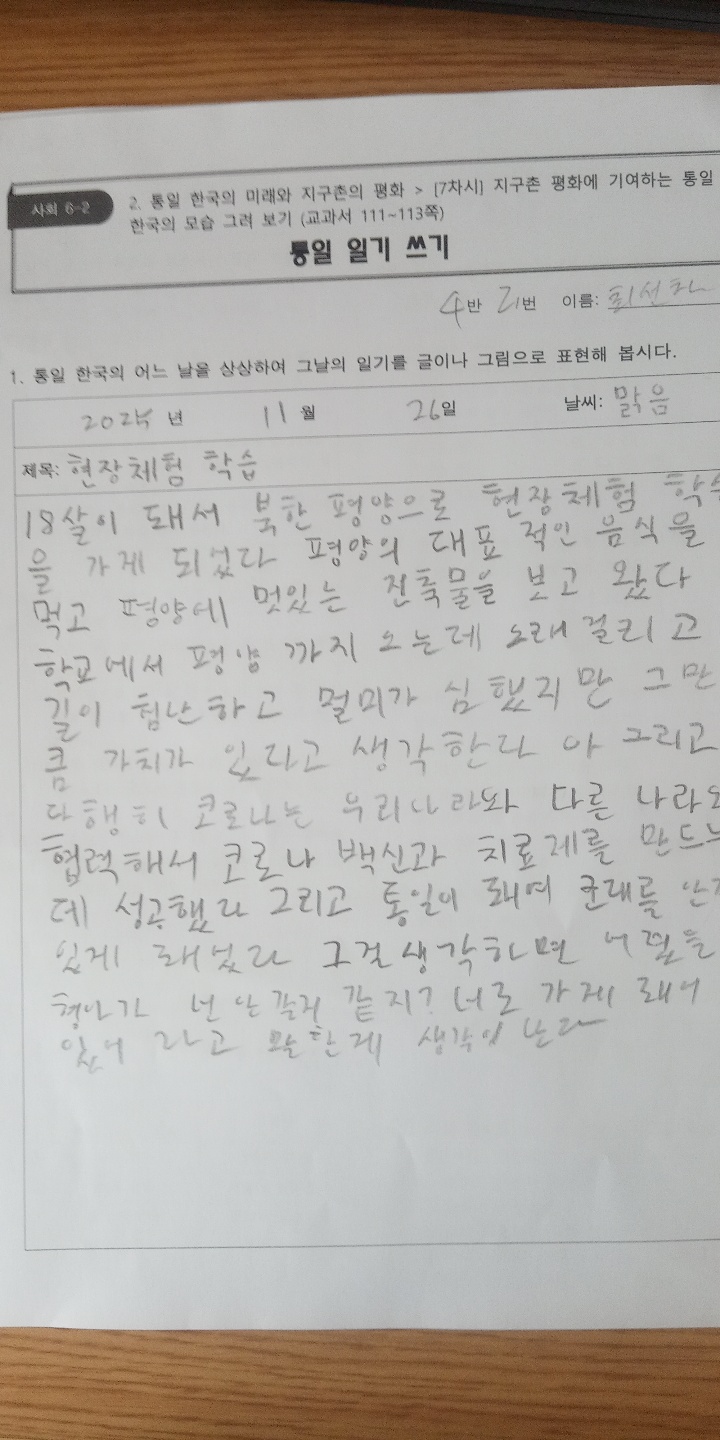 사회 6-2
2. 통일 한국의 미래와 지구촌의 평화 > [7차시] 지구촌 평화에 기여하는 통일
한국의 모습 그려 보기 (교과서 111~113쪽)
통일 일기 쓰기
4반 21번 이름:
1. 통일 한국의 어느 날을 상상하여 그날의 일기를 글이나 그림으로 표현해 봅시다.
년 11월 26일 날씨: 맑음
제목: 현장체험 학습
18살이 돼서 북한 평양으로 현장체험 학습
을 가게 되었다 평양의 대표 적인 음식을
먹고 평양에 멋있는 건축물을 보고 왔다
학교에서 평양 까지 오는데 오래걸리고
길이 험난하고 멀미가 심했지만 그만
큼 가치가 있다고 생각한다 아 그리고
다행히 코로나는 우리나라와 다른 나라와
협력해서 코로나 백신과 치료제를 만드는
데 성공했다 그리고 통일이 돼여 군대를 안
있게 돼었다 그걸생각하면 어렸을
형아가 넌 안 갈거 같지? 너도 가게 돼어
있어 라고 말한게 생각이 난다